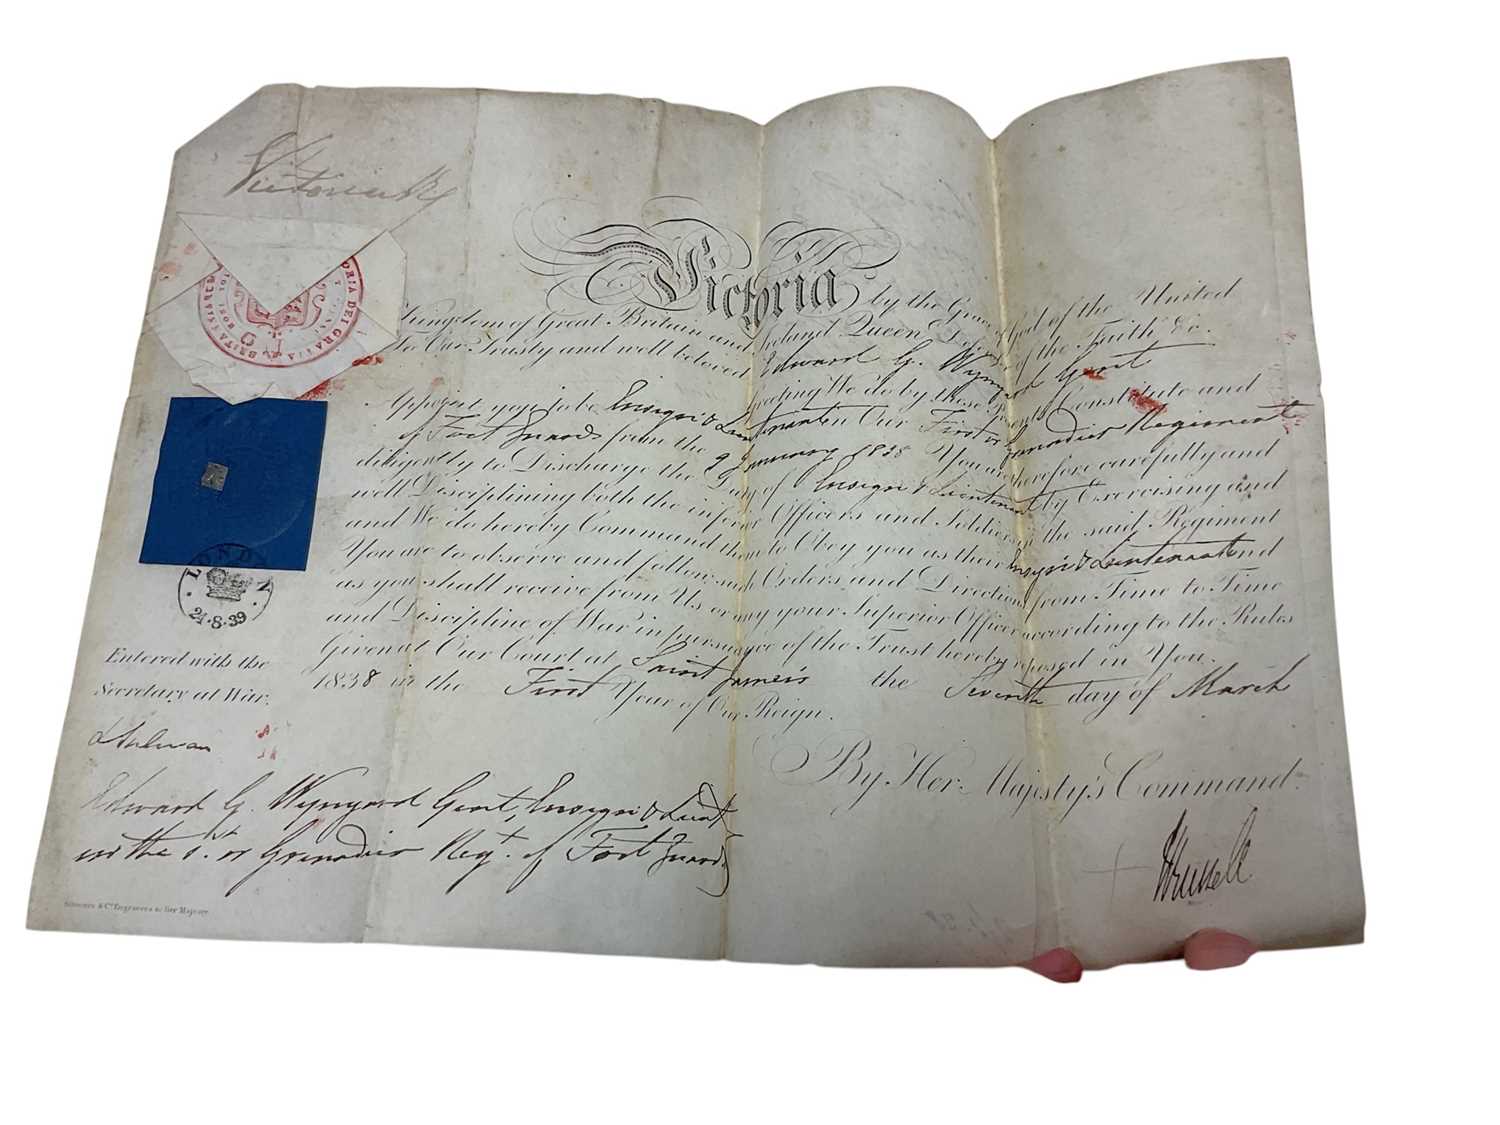 Victoria R
VICTORIA DEI GRATIA BRITANNIAR
Victoria by the Grace of God of the United
Kingdom of Great Britain and Ireland Queen Defender of the Faith &c.
To Our Trusty and well beloved Edward G. Wynyard Gent
Greeting We do by these Presents Constitute and
Appoint you to be Ensign & Lieutenant in Our First or Grenadier Regiment
of Foot Guards from the 9 January 1838 You are therefore carefully and
diligently to Discharge the Duty of Ensign & Lieutenant by Exercising and
well Disciplining both the inferior Officers and Soldiers in the said Regiment
and We do hereby Command them to Obey you as their Ensign & Lieutenant and
You are to observe and follow such Orders and Directions from Time to Time
as you shall receive from Us or any your Superior Officer according to the Rules
and Discipline of War in pursuance of the Trust hereby reposed in You.
Given at Our Court at Saint James's the Seventh day of March
1838 in the First Year of Our Reign.
LONDON
21·8·39
Entered with the
Secretary at War.
LSulivan
By Her Majesty's Command.
JRussell
Edward G. Wynyard Gent, Ensign & Lieut
in the 1st or Grenadier Regt. of Foot Guards
& Co. Engravers to Her Majesty